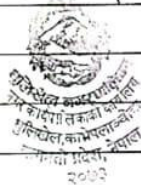 धुलिखेल नगरपालिका
नगर कार्यपालिकाको कार्यालय
धुलिखेल, काभ्रेपलाञ्चोक
बागमती प्रदेश, नेपाल